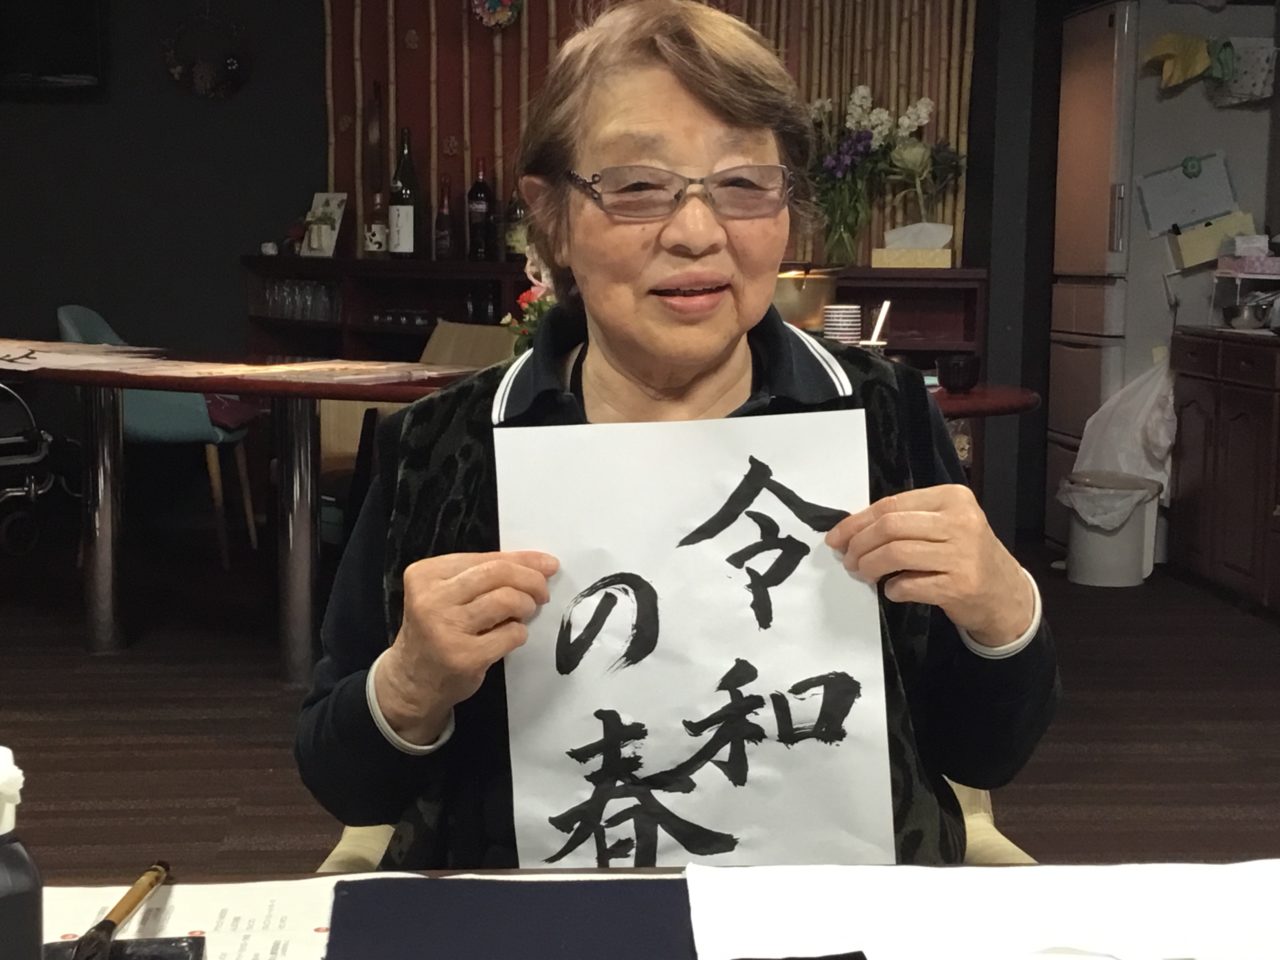 令和
の春